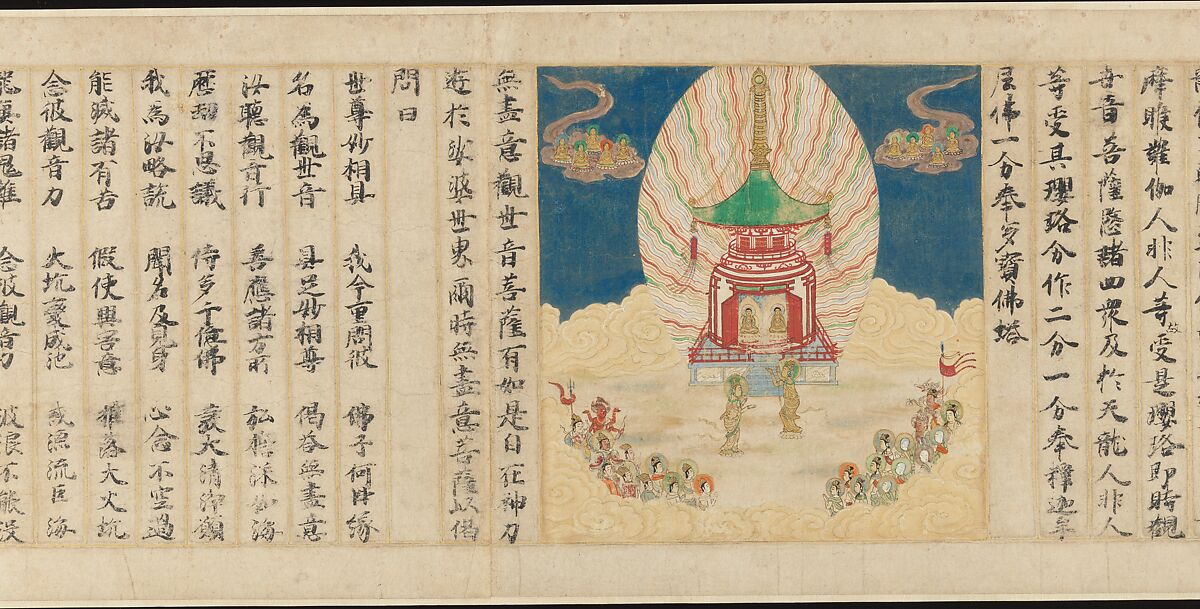 摩睺羅伽人非人等故受是瓔珞即時觀
世音菩薩愍諸四衆及於天龍人非人
等受其瓔珞分作二分一分奉釋迦牟
尼佛一分奉多寶佛塔
無盡意觀世音菩薩有如是自在神力
遊於娑婆世界爾時無盡意菩薩以偈
問曰
世尊妙相具 我今重問彼 佛子何因緣
名為觀世音 具足妙相尊 偈答無盡意
汝聽觀音行 善應諸方所 弘誓深如海
歷劫不思議 侍多千億佛 發大清淨願
我為汝略説 聞名及見身 心念不空過
能滅諸有苦 假使興害意 推落大火坑
念彼觀音力 火坑變成池 或漂流巨海
龍魚諸鬼難 念彼觀音力 波浪不能没